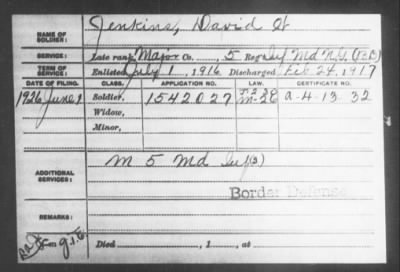 NAME OF SOLDIER: Jenkins, David
SERVICE: Late rank, Major Co. , 5 Reg't Md N.G.
TERM OF SERVICE: Enlisted July 1, 1916 Discharged Feb 24, 1917
DATE OF FILING. CLASS. APPLICATION NO. LAW. CERTIFICATE NO.
1926 June 1 Soldier, 1542027 A-4-13-32
Widow,
Minor,
ADDITIONAL SERVICES: M 5 Md Inf
Border Defense
REMARKS:
Died , 1 , at